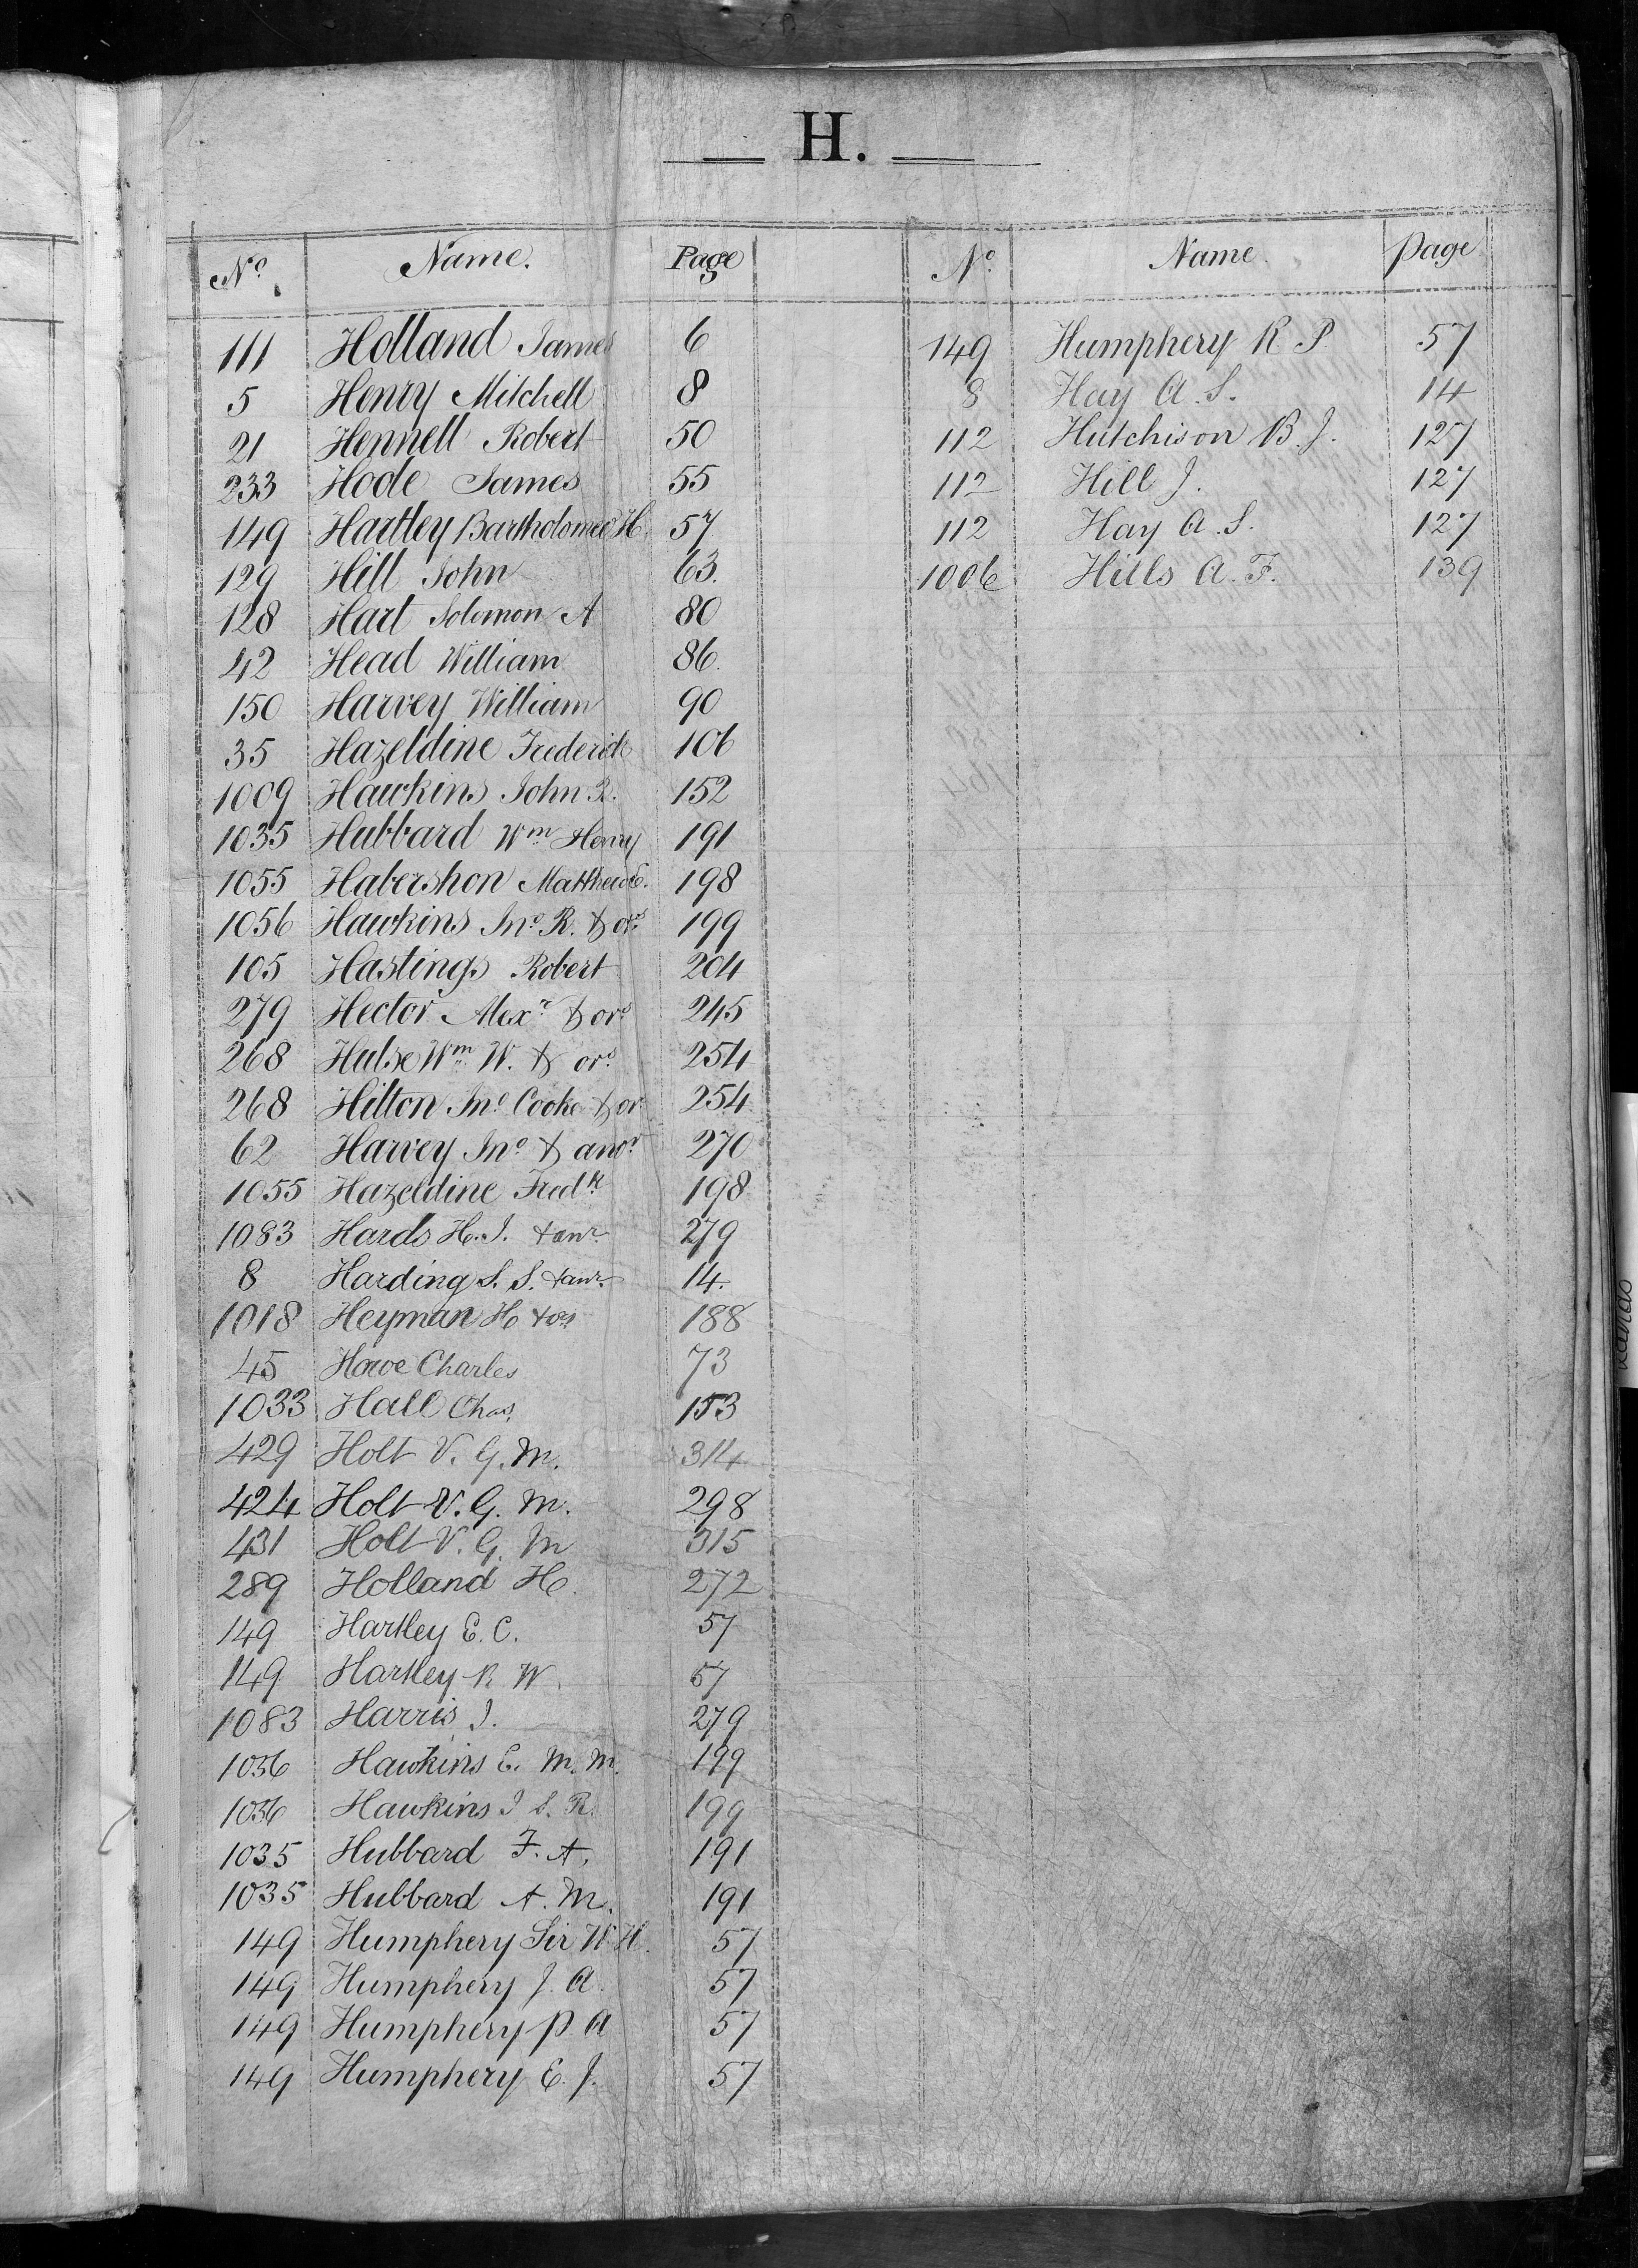 H.
No. Name. Page
111 Holland James 6
5 Henry Mitchell 8
21 Hennell Robert 50
233 Hode James 55
149 Hartley Bartholomew H. 57
129 Hill John 63.
128 Hart Solomon A 80
42 Head William 86.
150 Harvey William 90
35 Hazeldine Frederick 106
1009 Hawkins John R. 152
1035 Hubbard Wm Henry 191
1055 Habershon Matthew E. 198
1056 Hawkins Jno. R. & ors 199
105 Hastings Robert 204
279 Hector Alexr & ors 245
268 Hulse Wm W. & ors 254
268 Hilton Jno Cooke & or 254
62 Harvey Jno & anor 270
1055 Hazeldine Fredk 198
1083 Hards H. J. & anr 279
8 Harding S. S. & anr 14.
1018 Heyman H & or 188
45 Howe Charles 73
1033 Hall Chas. 153
429 Holt V. G. M. 314
424 Holt V. G. M. 298
431 Holt V. G. M 315
289 Holland H. 272
149 Hartley E. C. 57
149 Hartley R W. 57
1083 Harris J. 279
1056 Hawkins E. M. M. 199
1056 Hawkins J S. R. 199
1035 Hubbard F. A. 191
1035 Hubbard A. M. 191
149 Humphery Sir W. H. 57
149 Humphery J. A. 57
149 Humphery P A 57
149 Humphery E. J. 57
No. Name. Page
149 Humphery R P 57
8 Hay A. S. 14
112 Hutchison B. J. 127
112 Hill J. 127
112 Hay A. S. 127
1006 Hills A. F. 139